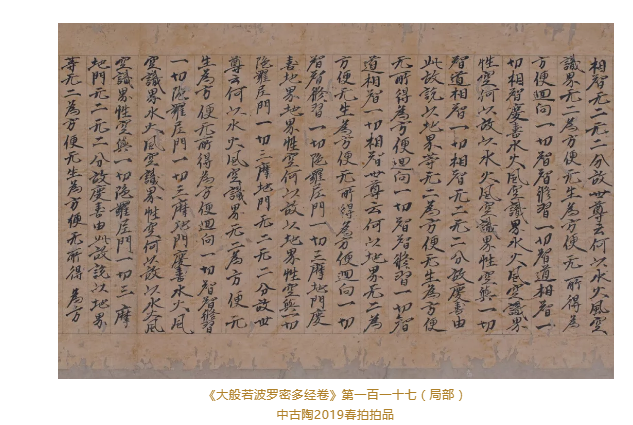 相智无二无二分故世尊云何以水火風空
識界无二為方便无生為方便无所得為
方便迴向一切智智修習一切智道相智一
切相智慶喜水火風空識界水火風空識界
性空何以故以水火風空識界性空與一切
智道相智一切相智无二无二分故慶喜由
此故說以地界等无二為方便无生為方便
无所得為方便迴向一切智智修習一切智
道相智一切相智世尊云何以地界无二為
方便无生為方便无所得為方便迴向一切
智智修習一切陀羅尼門一切三摩地門慶
喜地界地界性空何以故以地界性空與一切
陀羅尼門一切三摩地門无二无二分故世
尊云何以水火風空識界无二為方便无
生為方便无所得為方便迴向一切智智修習
一切陀羅尼門一切三摩地門慶喜水火風
空識界水火風空識界性空何以故以水火風
空識界性空與一切陀羅尼門一切三摩
地門无二无二分故慶喜由此故說以地界
等无二為方便无生為方便无所得為方
《大般若波罗密多经卷》第一百一十七（局部）
中古陶2019春拍拍品